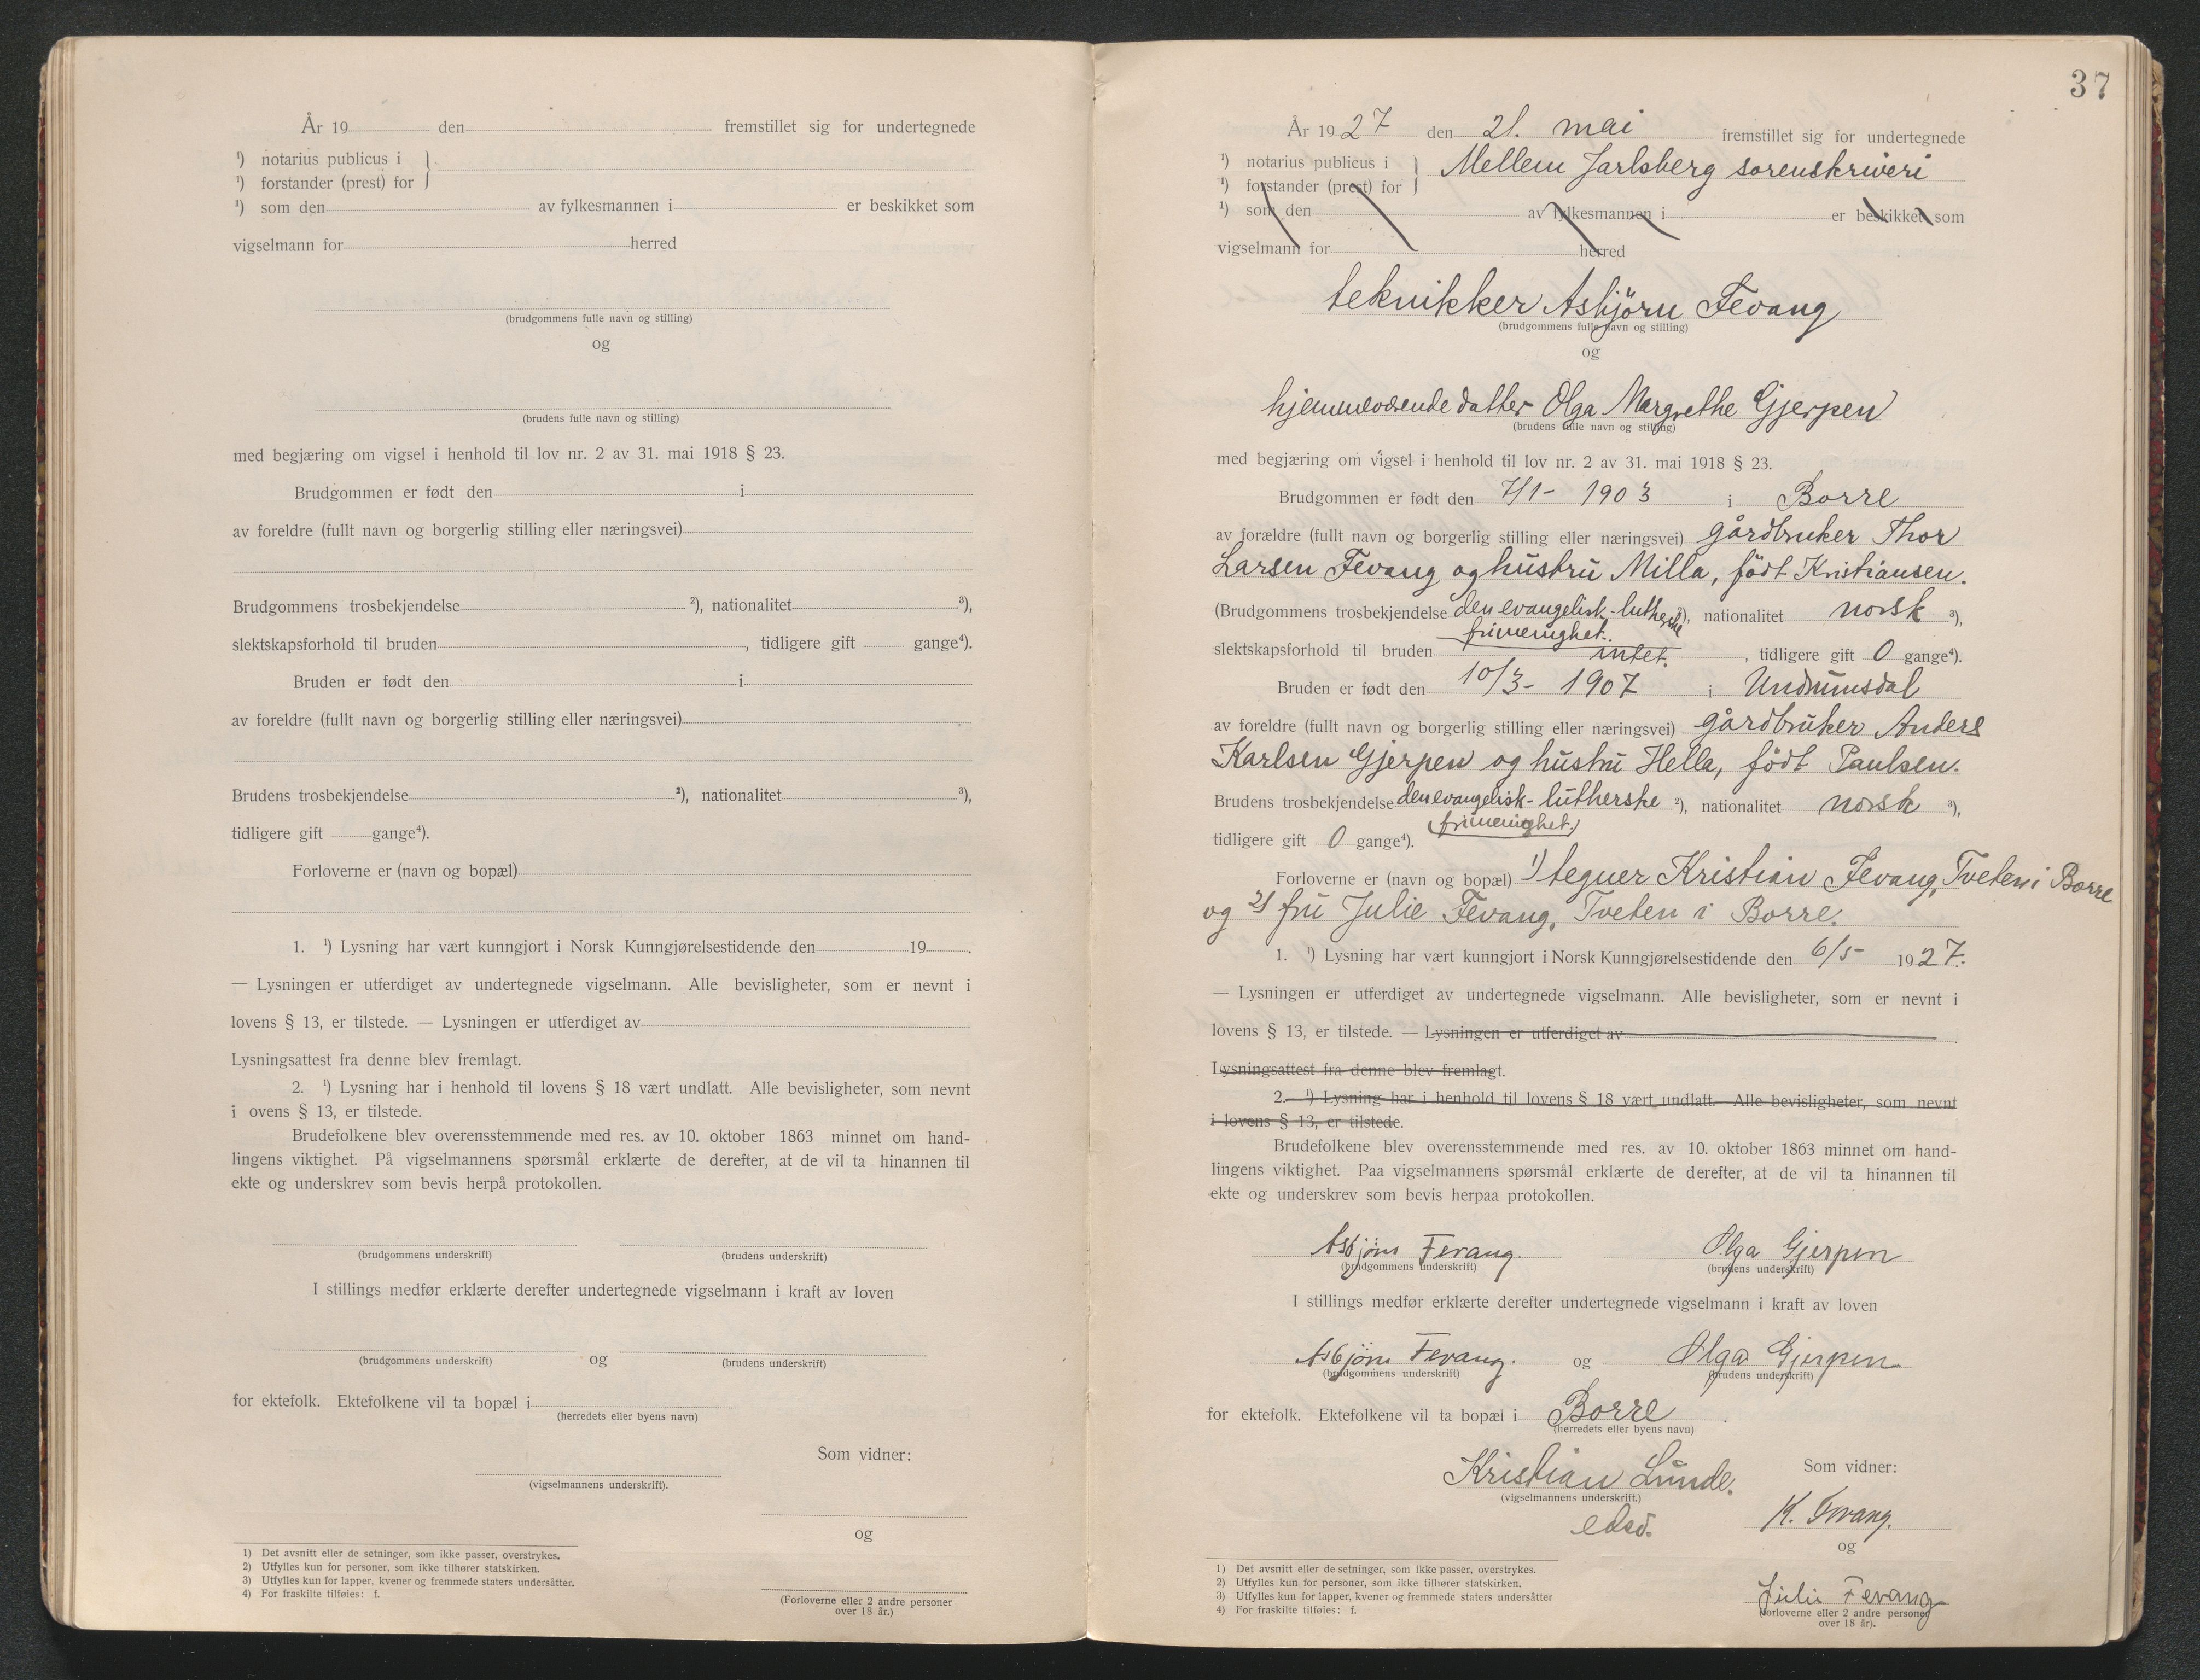 År 19 den fremstillet sig for undertegnede
¹) notarius publicus i }
¹) forstander (prest) for
¹) som den av fylkesmannen i er beskikket som
vigselmann for herred
(brudgommens fulle navn og stilling)
og
(brudens fulle navn og stilling)
med begjæring om vigsel i henhold til lov nr. 2 av 31. mai 1918 § 23.
Brudgommen er født den i
av foreldre (fullt navn og borgerlig stilling eller næringsvei)
Brudgommens trosbekjendelse ²), nationalitet ³),
slektskapsforhold til bruden , tidligere gift gange⁴).
Bruden er født den i
av foreldre (fullt navn og borgerlig stilling eller næringsvei)
Brudens trosbekjendelse ²), nationalitet ³),
tidligere gift gange⁴).
Forloverne er (navn og bopæl)
1. ¹) Lysning har vært kunngjort i Norsk Kunngjørelsestidende den 19 .
— Lysningen er utferdiget av undertegnede vigselmann. Alle bevisligheter, som er nevnt i
lovens § 13, er tilstede. — Lysningen er utferdiget av
Lysningsattest fra denne blev fremlagt.
2. ¹) Lysning har i henhold til lovens § 18 vært undlatt. Alle bevisligheter, som nevnt
i ovens § 13, er tilstede.
Brudefolkene blev overensstemmende med res. av 10. oktober 1863 minnet om hand-
lingens viktighet. På vigselmannens spørsmål erklærte de derefter, at de vil ta hinannen til
ekte og underskrev som bevis herpå protokollen.
(brudgommens underskrift) (brudens underskrift)
I stillings medfør erklærte derefter undertegnede vigselmann i kraft av loven
og
(brudgommens underskrift) (brudens underskrift)
for ektefolk. Ektefolkene vil ta bopæl i
(herredets eller byens navn)
Som vidner:
(vigselmannens underskrift).
og
1) Det avsnitt eller de setninger, som ikke passer, overstrykes.
2) Utfylles kun for personer, som ikke tilhører statskirken.
3) Utfylles kun for lapper, kvener og fremmede staters undersåtter.
4) For fraskilte tilføies: f.
(Forloverne eller 2 andre personer
over 18 år.)
37
År 1927 den 21. mai fremstillet sig for undertegnede
¹) notarius publicus i } Mellem Jarlsberg sorenskriveri
¹) forstander (prest) for
¹) som den av fylkesmannen i er beskikket som
vigselmann for herred
teknikker Asbjörn Fevang
(brudgommens fulle navn og stilling)
og
hjemmeværende datter Olga Margrethe Gjerpen
(brudens fulle navn og stilling)
med begjæring om vigsel i henhold til lov nr. 2 av 31. mai 1918 § 23.
Brudgommen er født den 7/1- 1903 i Borre
av forældre (fullt navn og borgerlig stilling eller næringsvei) gårdbruker Thor
Larsen Fevang og hustru Milla, födt Kristiansen.
(Brudgommens trosbekjendelse den evangelisk-lutherske ²), nationalitet norsk ³),
frimenighet.
slektskapsforhold til bruden intet. , tidligere gift 0 gange⁴).
Bruden er født den 10/3- 1907 i Undrumsdal
av foreldre (fullt navn og borgerlig stilling eller næringsvei) gårdbruker Anders
Karlsen Gjerpen og hustru Hella, födt Paulsen.
Brudens trosbekjendelse den evangelisk-lutherske ²), nationalitet norsk ³),
frimenighet.
tidligere gift 0 gange⁴).
Forloverne er (navn og bopæl) 1) tegner Kristian Fevang, Tveten i Borre
og 2) fru Julie Fevang, Tveten i Borre.
1. ¹) Lysning har vært kunngjort i Norsk Kunngjørelsestidende den 6/5- 1927.
— Lysningen er utferdiget av undertegnede vigselmann. Alle bevisligheter, som er nevnt i
lovens § 13, er tilstede. — Lysningen er utferdiget av
Lysningsattest fra denne blev fremlagt.
2. ¹) Lysning har i henhold til lovens § 18 vært undlatt. Alle bevisligheter, som nevnt
i lovens § 13, er tilstede.
Brudefolkene blev overensstemmende med res. av 10. oktober 1863 minnet om hand-
lingens viktighet. Paa vigselmannens spørsmål erklærte de derefter, at de vil ta hinannen til
ekte og underskrev som bevis herpaa protokollen.
Asbjörn Fevang. Olga Gjerpen
(brudgommens underskrift) (brudens underskrift)
I stillings medfør erklærte derefter undertegnede vigselmann i kraft av loven
Asbjörn Fevang. og Olga Gjerpen
(brudgommens underskrift) (brudens underskrift)
for ektefolk. Ektefolkene vil ta bopæl i Borre .
(herredets eller byens navn)
Kristian Lunde. Som vidner:
(vigselmannens underskrift.)
edsv. K. Fevang.
og
1) Det avsnitt eller de setninger, som ikke passer, overstrykes.
2) Utfylles kun for personer, som ikke tilhører statskirken.
3) Utfylles kun for lapper, kvener og fremmede staters undersåtter
4) For fraskilte tilføies: f.
Julie Fevang
(forloverne eller 2 andre personer
over 18 år).